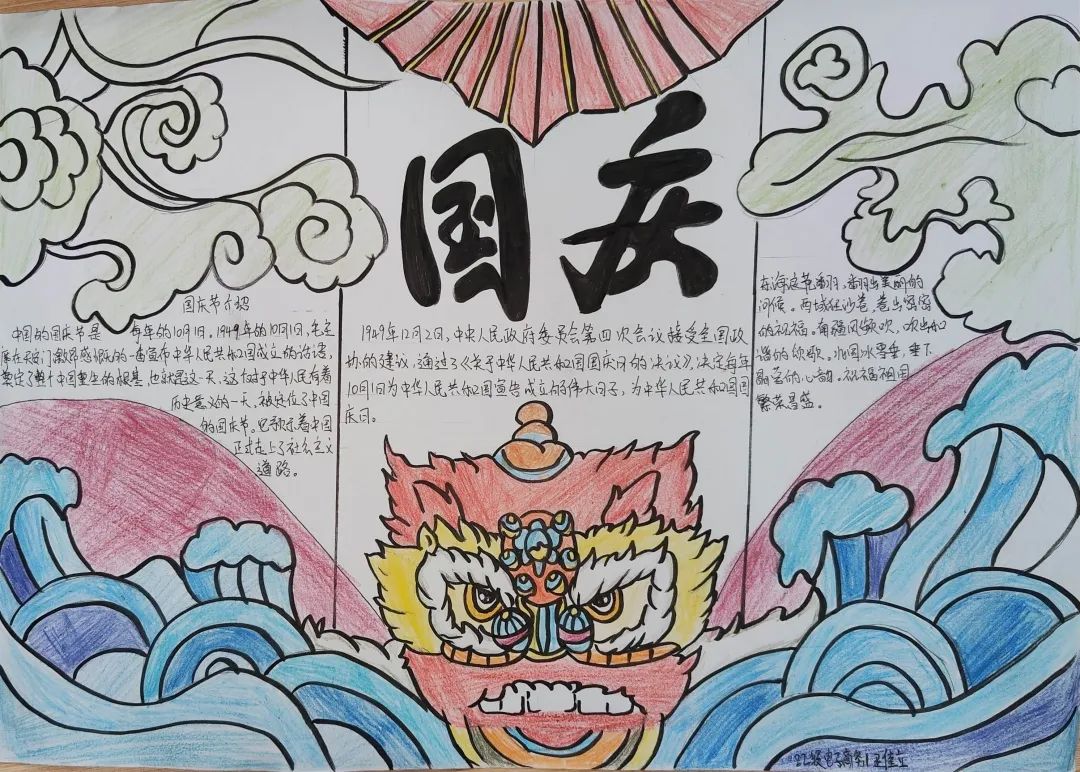 国庆
国庆节介绍
中国的国庆节是 每年的10月1日。1949年的10月1日,毛主
席在天安门激昂感慨的一番宣布中华人民共和国成立的话语,
奠定了整个中国重生的根基,也就是这一天,这个对于中华人民有着
历史意义的一天,被定位了中国
的国庆节。它预示着中国
正式走上了社会主义
道路。
1949年12月2日,中央人民政府委员会第四次会议接受全国政
协的建议,通过了《关于中华人民共和国国庆日的决议》,决定每年
10月1日为中华人民共和国宣告成立的伟大日子,为中华人民共和国国
庆日。
在海底节翻羽,翻出美丽的
问候。西域狂沙卷,卷出密密
的祝福。南疆风欲吹,吹出和
谐的颂歌。北国冰雪垂,垂下
融芒的心韵。祝福祖国
繁荣昌盛。
级电子商务1